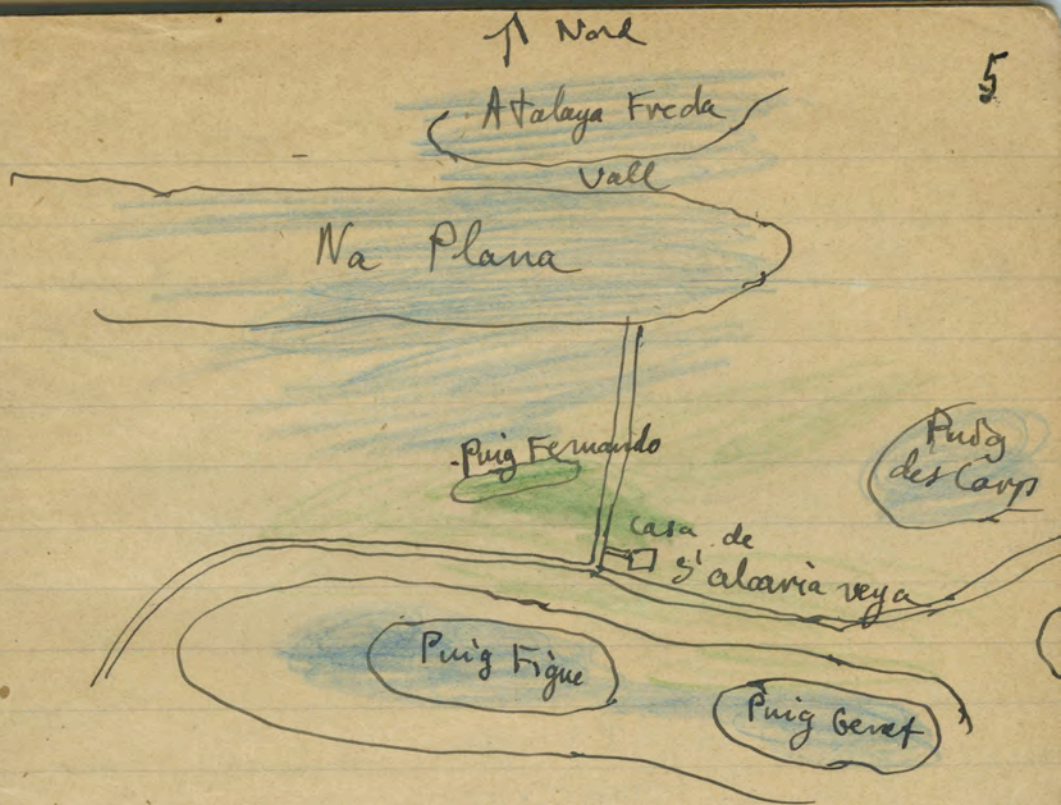 Nord
5
Atalaya Freda
Vall
Na Plana
Puig Fernando
Puig
des Carp
casa de
s'alcaria veya
Puig Figue
Puig Genet